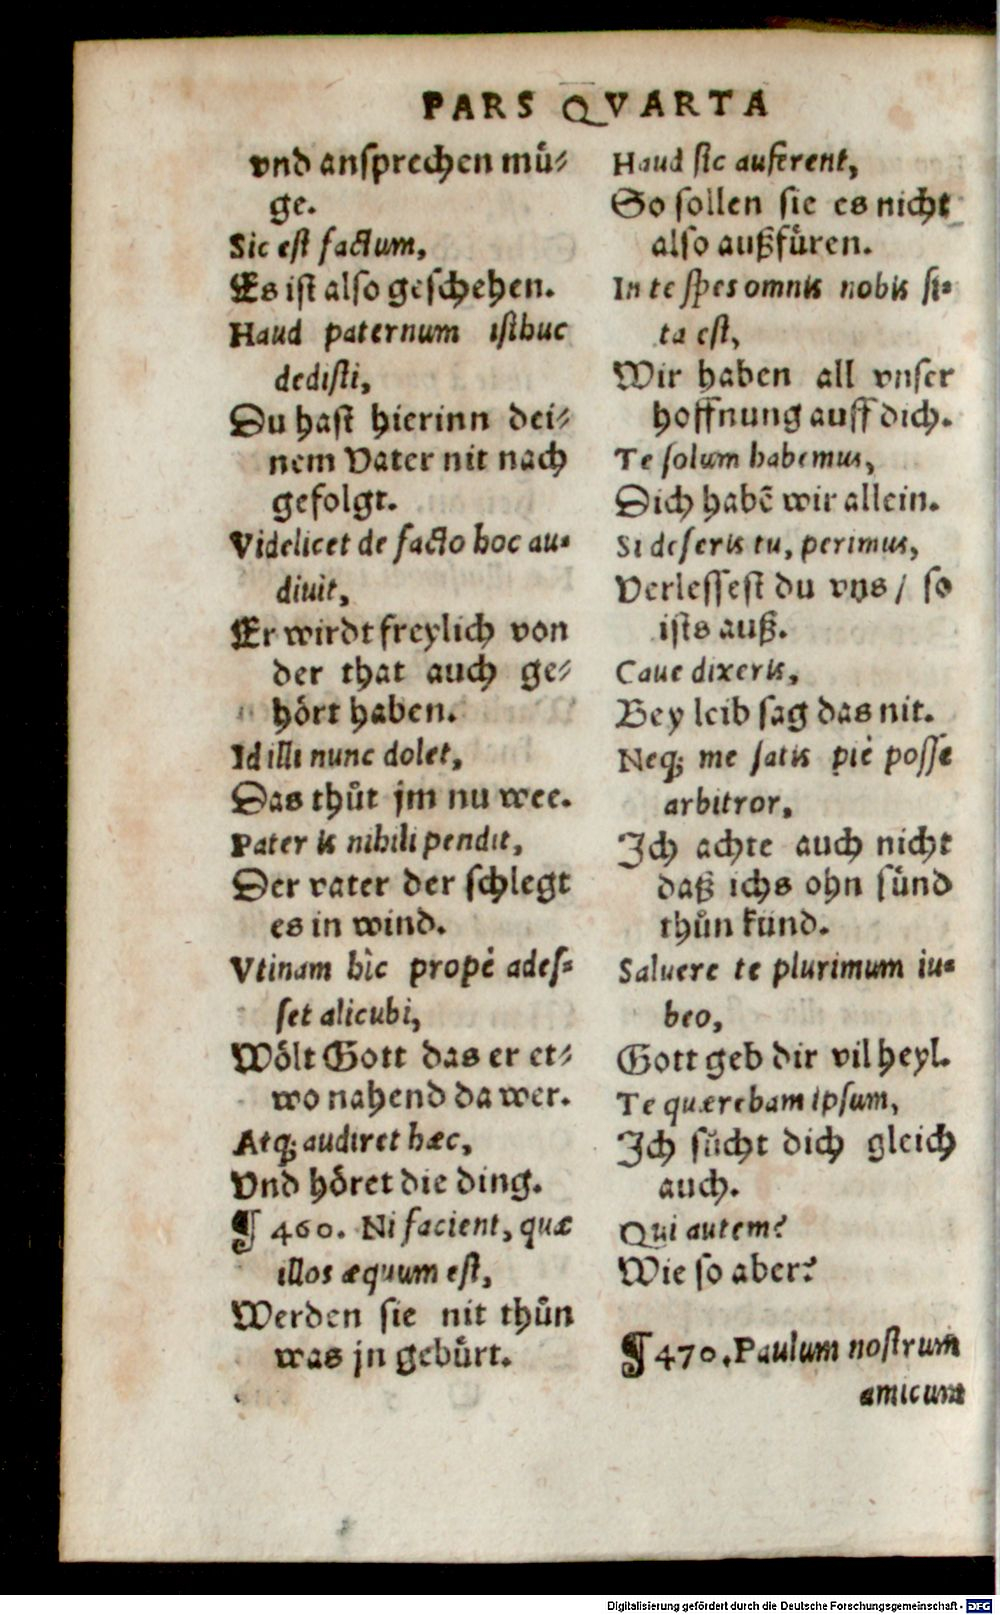 PARS QVARTA
vnd ansprechen mů⸗
ge.
Sic est factum,
Es ist also geschehen.
Haud paternum isthuc
dedisti,
Du hast hierinn dei⸗
nem Vater nit nach
gefolgt.
Videlicet de facto hoc au⸗
diuit,
Er wirdt freylich von
der that auch ge⸗
hört haben.
Id illi nunc dolet,
Das thůt jm nu wee.
Pater is nihili pendit,
Der vater der schlegt
es in wind.
Vtinam hìc propè ades⸗
set alicubi,
Wölt Gott das er et⸗
wo nahend da wer.
Atq; audiret hæc,
Vnd höret die ding.
¶ 460. Ni facient, quæ
illos æquum est,
Werden sie nit thůn
was jn gebürt.
Haud sic auferent,
So sollen sie es nicht
also außfüren.
In te spes omnis nobis si⸗
ta est,
Wir haben all vnser
hoffnung auff dich.
Te solum habemus,
Dich habē wir allein.
Si deseris tu, perimus,
Verlessest du vns / so
ists auß.
Caue dixeris,
Bey leib sag das nit.
Neq; me satis piè posse
arbitror,
Ich achte auch nicht
daß ichs ohn sünd
thůn künd.
Saluere te plurimum iu⸗
beo,
Gott geb dir vil heyl.
Te quærebam ipsum,
Ich sůcht dich gleich
auch.
Qui autem?
Wie so aber?
¶ 470. Paulum nostrum
amicum
Digitalisierung gefördert durch die Deutsche Forschungsgemeinschaft - DFG